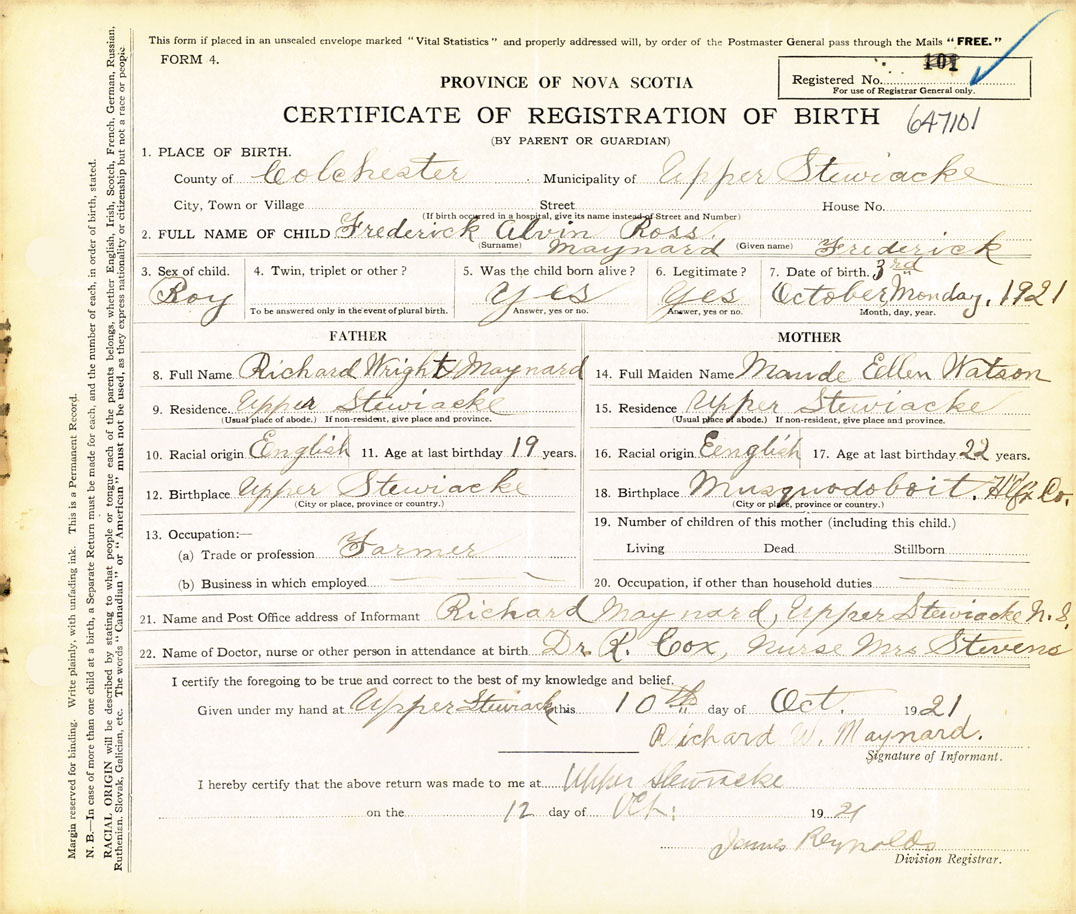 This form if placed in an unsealed envelope marked "Vital Statistics" and properly addressed will, by order of the Postmaster General pass through the Mails "FREE."
FORM 4.
101
Registered No.
For use of Registrar General only.
PROVINCE OF NOVA SCOTIA
CERTIFICATE OF REGISTRATION OF BIRTH 647101
(BY PARENT OR GUARDIAN)
1. PLACE OF BIRTH.
County of Colchester Municipality of Upper Stewiacke
City, Town or Village Street House No.
(If birth occurred in a hospital, give its name instead of Street and Number)
2. FULL NAME OF CHILD Frederick Alvin Ross.
(Surname) Maynard (Given name) Frederick
3. Sex of child. 4. Twin, triplet or other? 5. Was the child born alive? 6. Legitimate? 7. Date of birth. 3rd
Boy Yes Yes October, Monday, 1921
To be answered only in the event of plural birth. Answer, yes or no. Answer, yes or no. Month, day, year.
FATHER MOTHER
8. Full Name Richard Wright Maynard 14. Full Maiden Name Maude Ellen Watson
9. Residence Upper Stewiacke 15. Residence Upper Stewiacke
(Usual place of abode.) If non-resident, give place and province. (Usual place of abode.) If non-resident, give place and province.
10. Racial origin English 11. Age at last birthday 19 years. 16. Racial origin Eenglish 17. Age at last birthday 22 years.
12. Birthplace Upper Stewiacke 18. Birthplace Musquodoboit. Hfx Co.
(City or place, province or country.) (City or place, province or country.)
13. Occupation:— 19. Number of children of this mother (including this child.)
(a) Trade or profession Farmer Living Dead Stillborn
(b) Business in which employed 20. Occupation, if other than household duties
21. Name and Post Office address of Informant Richard Maynard, Upper Stewiacke N.S.
22. Name of Doctor, nurse or other person in attendance at birth Dr. K. Cox, Nurse Mrs Stevens
I certify the foregoing to be true and correct to the best of my knowledge and belief.
Given under my hand at Upper Stewiack this 10th day of Oct. 1921
Richard W. Maynard.
Signature of Informant.
I hereby certify that the above return was made to me at Upper Stewiacke
on the 12 day of Oct. 1921
James Reynolds
Division Registrar.
Margin reserved for binding. Write plainly, with unfading ink. This is a Permanent Record.
N. B.—In case of more than one child at a birth, a Separate Return must be made for each, and the number of each, in order of birth, stated.
RACIAL ORIGIN will be described by stating to what people or tongue each of the parents belongs, whether English, Irish, Scotch, French, German, Russian,
Ruthenian, Slovak, Galician, etc. The words "Canadian" or "American" must not be used, as they express nationality or citizenship but not a race or people